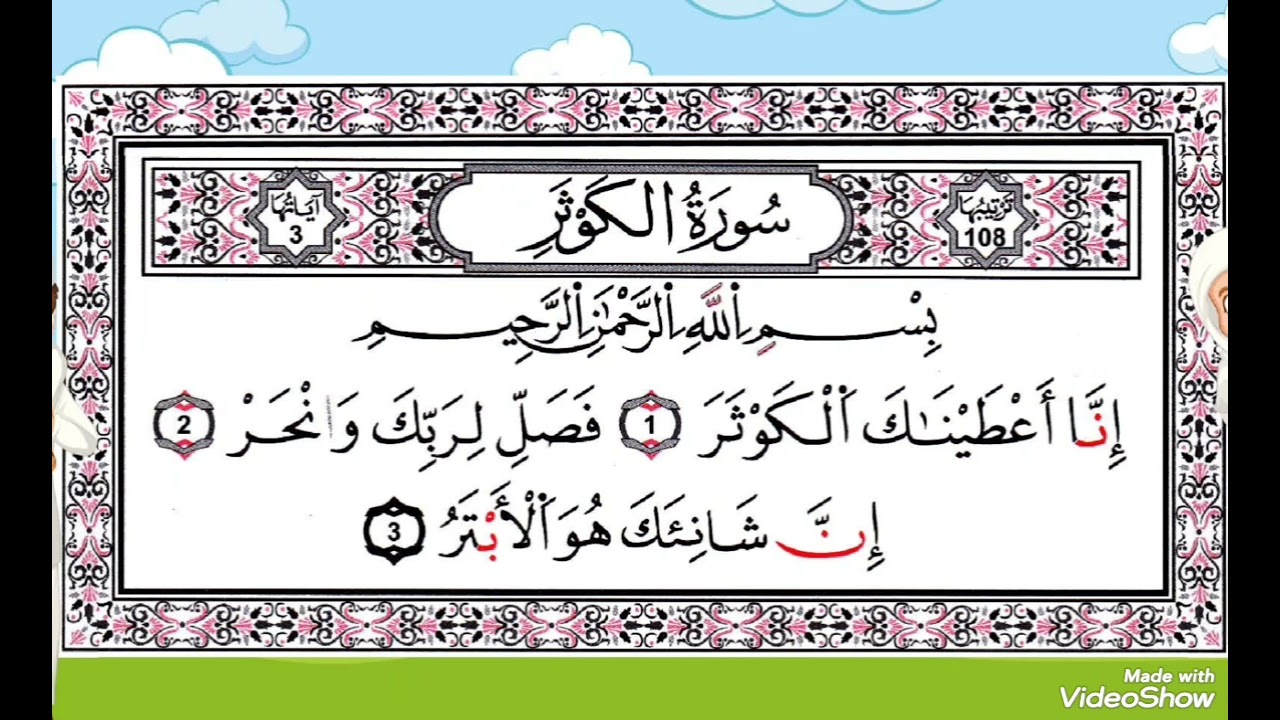 تَرْتِيبُهَا 108
سُورَةُ الْكَوْثَرِ
آيَاتُهَا 3
بِسْمِ اللَّهِ الرَّحْمَٰنِ الرَّحِيمِ
إِنَّا أَعْطَيْنَاكَ الْكَوْثَرَ 1 فَصَلِّ لِرَبِّكَ وَانْحَرْ 2
إِنَّ شَانِئَكَ هُوَ الْأَبْتَرُ 3
Made with
VideoShow